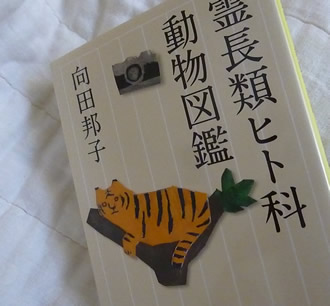 霊長類ヒト科
動物図鑑
向田邦子